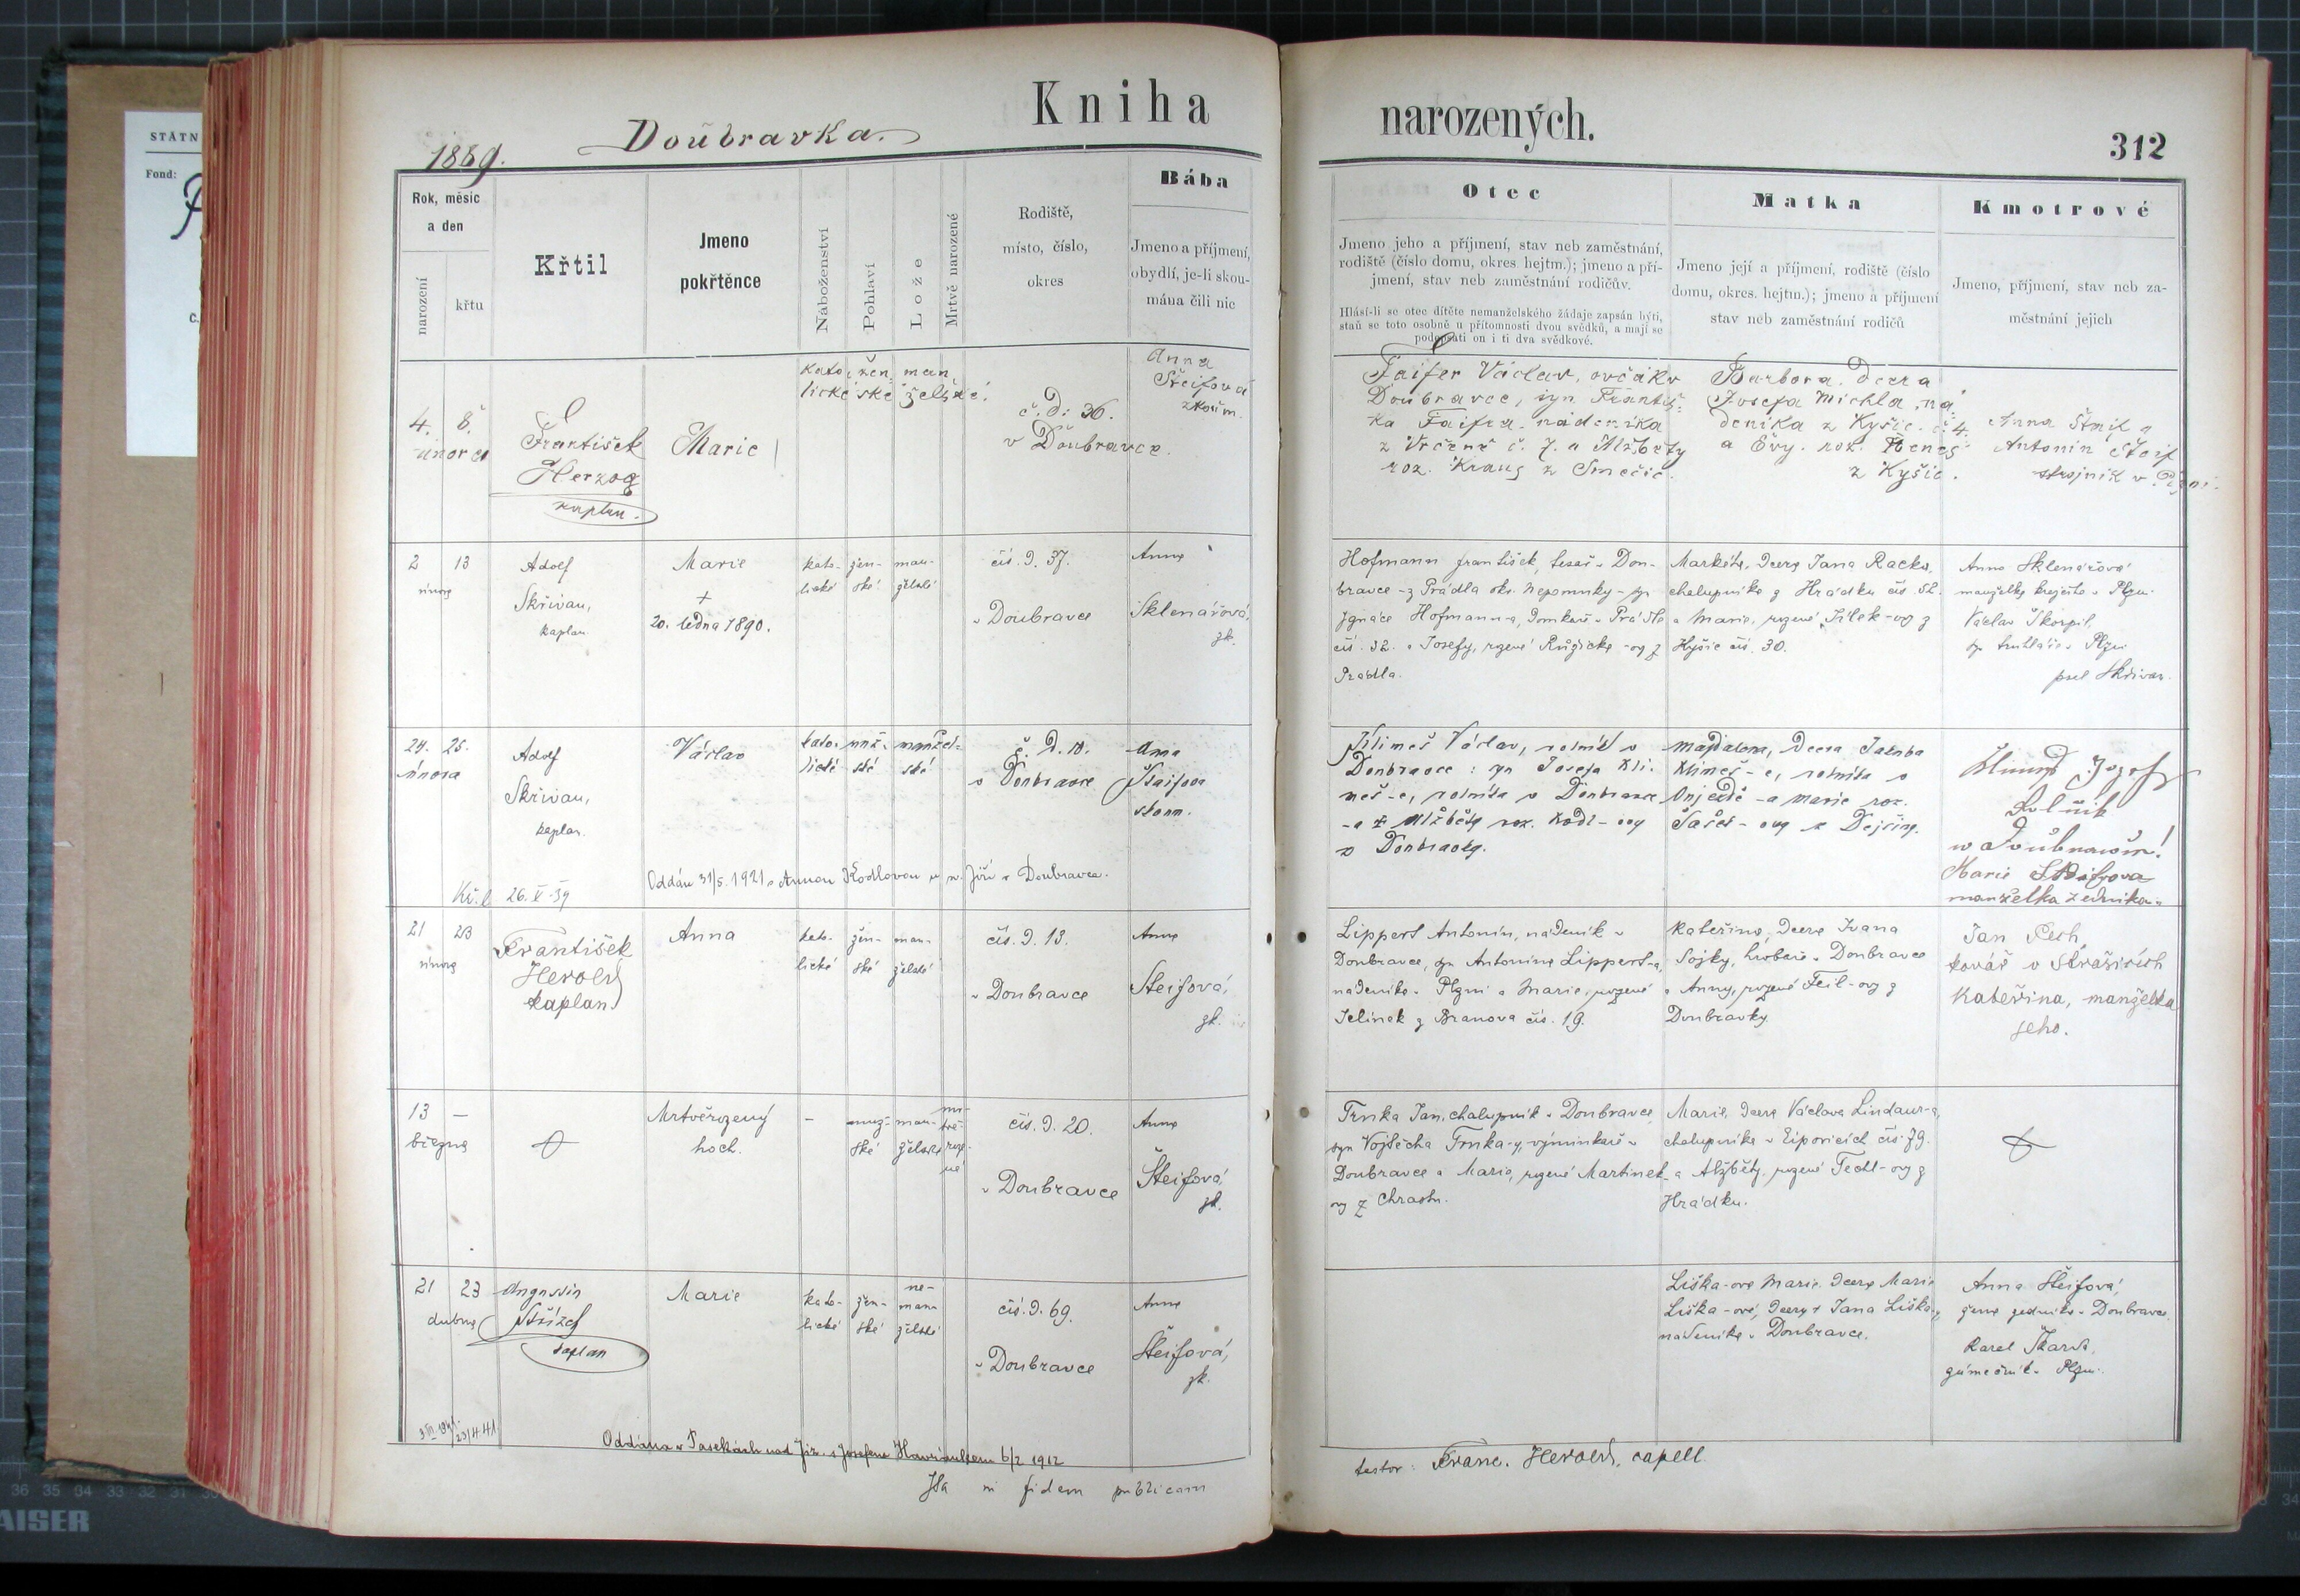 STÁTN
Fond:
Kniha
narozených.
1889.
Doubravka.
312
Rok, měsíc
a den
narození
křtu
Křtil
Jmeno
pokřtěnce
Náboženství
Pohlaví
Lože
Mrtvě narozené
Rodiště,
místo, číslo,
okres
Bába
Jmeno a příjmení,
obydlí, je-li skou-
mána čili nic
Otec
Jmeno jeho a příjmení, stav neb zaměstnání,
rodiště (číslo domu, okres hejtm.); jmeno a pří-
jmení, stav neb zaměstnání rodičův.
Hlásí-li se otec dítěte nemanželského žádaje zapsán býti,
staň se toto osobně u přítomnosti dvou svědků, a mají se
podepsati on i ti dva svědkové.
Matka
Jmeno její a příjmení, rodiště (číslo
domu, okres. hejtm.); jmeno a příjmení
stav neb zaměstnání rodičů
Kmotrové
Jmeno, příjmení, stav neb za-
městnání jejich
4. 8.
února
František
Herzog
kaplan.
Marie
kato- žen- man-
lické ské želské.
č. d. 36.
v Doubravce.
Anna
Šteifová
zkoum.
Faifer Václav, ovčák v
Doubravce, syn Františ-
ka Faifra nádeníka
z Vrčeně č. 7. a Alžběty
roz. Kraus z Smečic.
Barbora, dcera
Josefa Michla, ná-
deníka z Kyšic č. 4.
a Evy roz. Beneš
z Kyšic.
Anna Štajf a
Antonín
strojník v
2 13
února
Adolf
Skřivan,
kaplan.
Marie
+
20. ledna 1890.
kato- žen- man-
lické ské želské
čís. d. 37.
v Doubravce
Anna
Sklenářová,
zk.
Hofmann František, tesař v Dou-
bravce z Prádla okr. Nepomuky - syn
Ignáce Hofmann-a, domkáře v Prádle
čís. 32. a Josefy, rozené Růžička -ovy z
Prádla.
Markéta, dcera Jana Racka,
chalupníka z Hrádku čís. 52.
a Marie, rozené Jílek -ovy z
Kyšic čís. 30.
Anna Sklenářová
manželka krejčího v Plzni
Václav Škorpil,
syn truhláře v Plzni
psal Skřivan.
24. 25.
února
Adolf
Skřivan,
kaplan.
Václav
kato- muž- manžel-
lické ské ské
č. d. 10.
v Doubravce
Anna
Štaifova
skoum.
Klimeš Václav, rolník v
Doubravce: syn Josefa Kli-
meš-e, rolníka v Doubravce
-a Alžběty roz. Kodl-ovy
z Doubravky.
Magdalena, dcera Jakuba
Klimeš-e, rolníka v
Oujezdě -a Marie roz.
Klimeš Jozef
Rolník
Marie Štaifova
manželka zedníka
Oddán 31/5. 1921 s Annou Kodlovou u sv. Jiří v Doubravce.
Kř. l. 26. V. 39
21 23
února
František
Herold
kaplan
Anna
kato- žen- man-
lické ské želské
čís. d. 13.
v Doubravce
Anna
Šteifová,
zk.
Lippert Antonín, nádeník v
Doubravce, syn Antonína Lippert-a,
nádeníka v Plzni a Marie, rozené
Jelínek z Branova čís. 19.
Kateřina, dcera Ivana
Sojky, hrobaře v Doubravce
a Anny, rozené Feil-ovy z
Doubravky
Jan Pech,
kovář v Strašicích
Kateřina, manželka
jeho.
13 —
března
Mrtvěrozený
hoch.
—
muž- man-
ské želské
mr-
tvě-
roze-
né
čís. d. 20.
v Doubravce
Anna
Šteifová,
zk.
Trnka Jan, chalupník v Doubravce
syn Vojtěcha Trnka-y, výminkáře v
Doubravce a Marie, rozené Martinek-
ovy z Chrástu.
Marie, dcera Václava Lindaur-a,
chalupníka v Ejpovicích čís. 79.
a Alžběty, rozené Techl-ovy z
Hrádku.
21 23
dubna
Augustin
kaplan
Marie
kato- žen- ne-
man-
lické ské želské
čís. d. 69.
v Doubravce
Anna
Šteifová,
zk.
Liška-ova Marie, dcera Marie
Liška-ové, dcery + Jana Liška-y,
nádeníka v Doubravce.
Anna Šteifová,
žena zedníka v Doubravce
Karel Škarda,
zámečník v Plzni.
23/4 41
Oddána v Pasekách nad Jiz. s Josefem Havránkem 6/2 1912
Ita in fidem publicam
testor: Franc. Herold, capell.